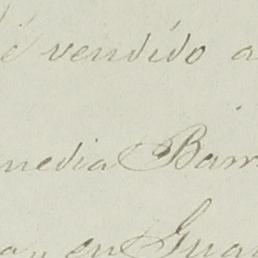 é vendido a
media Barr
en Gua